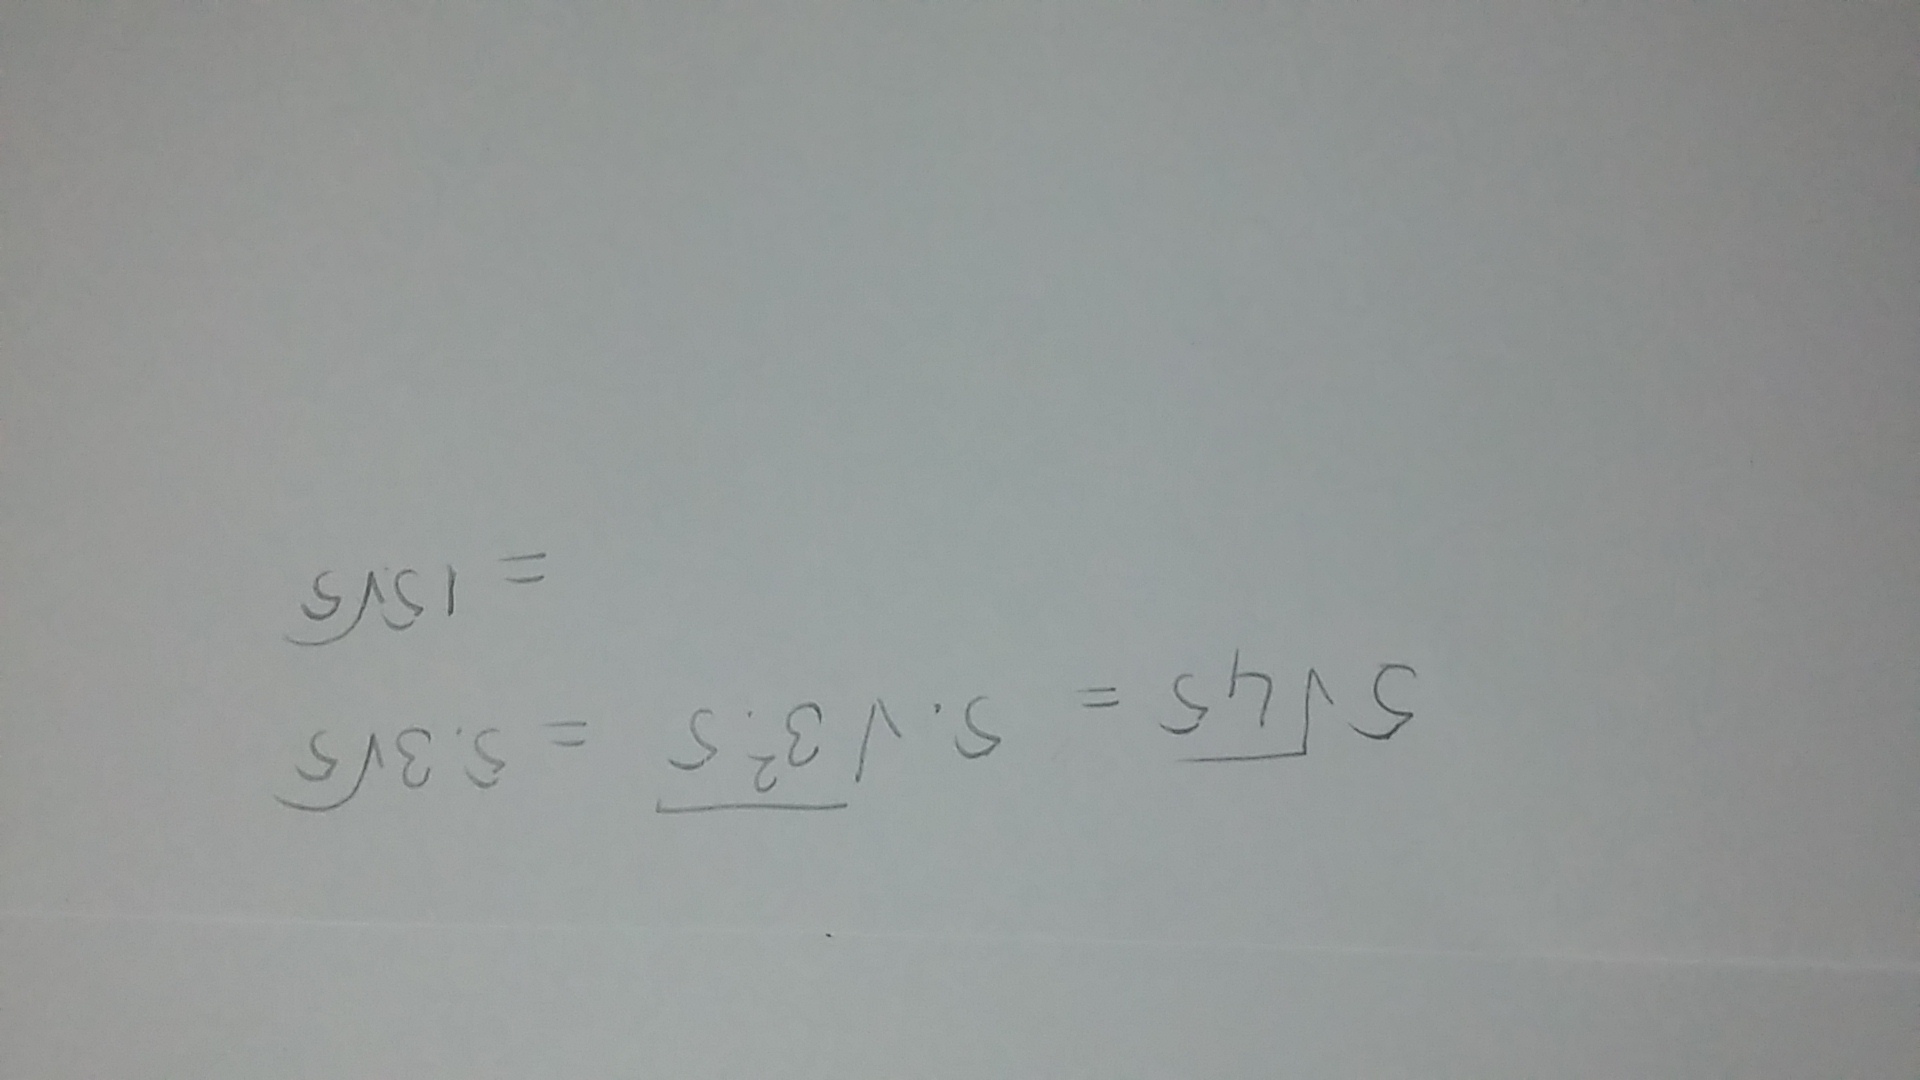 5√45 = 5.√3².5 = 5.3√5
= 15√5